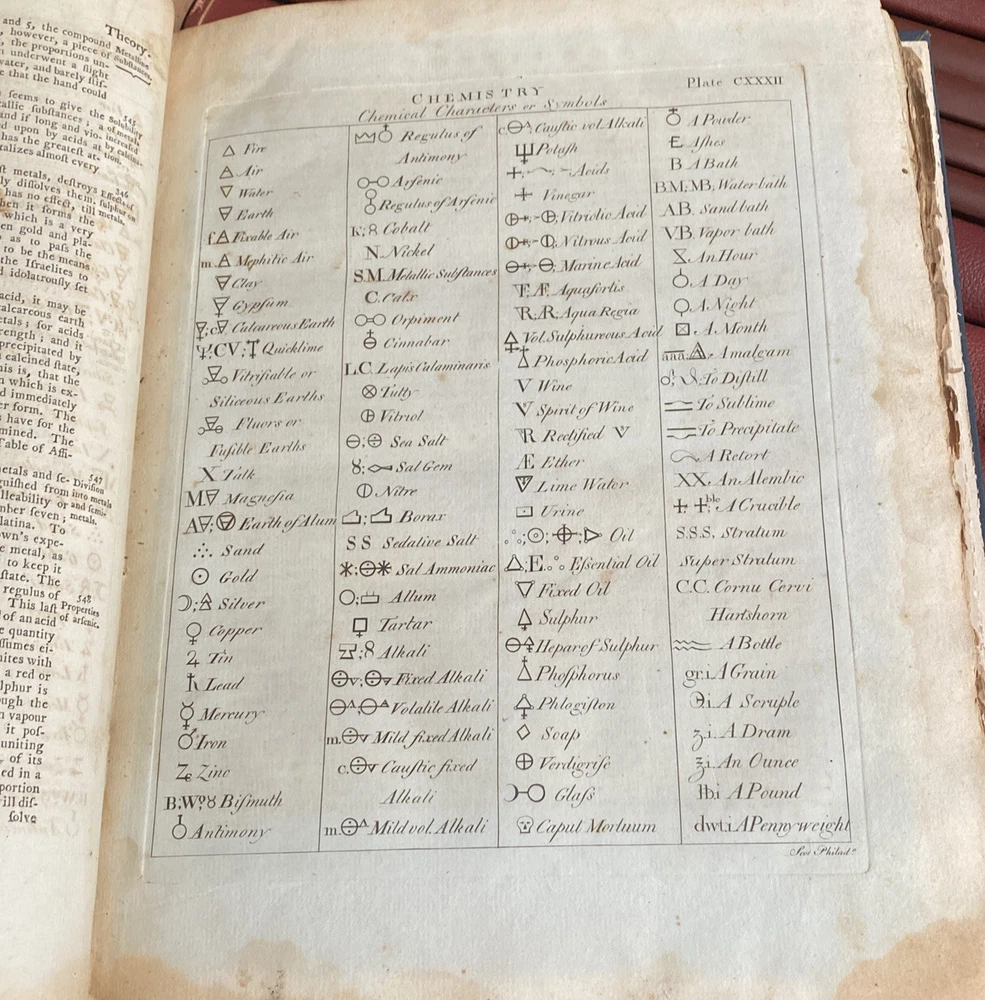 Theory.
and 5, the compound Metalline
however, a piece of Substances.
the proportions un-
underwent a slight
water, and barely suf-
e that the hand could
545
seems to give the Solubility
tallic substances; a of metals
nd if long and vio- increased
d upon by acids at by calcina-
has the greatest at- tion.
talizes almost every
546
st metals, destroys Effects of
ly dissolves them. sulphur on
has no effect, till metals.
hen it forms the
which is a very
en gold and pla-
as to pass the
to be the means
the Israelites to
d idolatrously set
acid, it may be
alcareous earth
tals; for acids
rength; and it
precipitated by
calcined state,
his is, that the
n which is ex-
d immediately
er form. The
s have for the
mined. The
Table of Affi-
547
etals and se- Division
nguished from into metals
lleability or and semi-
mber seven; metals.
latina. To
own's expe-
e metal, as
to keep it
state. The
regulus of 548
This last Properties
of an acid of arsenic.
e quantity
ssumes ei-
nites with
a red or
lphur is
ough the
n vapour
it pos-
uniting
of its
ed in a
portion
ill dis-
solve
CHEMISTRY
Plate CXXXII
Chemical Characters or Symbols
🜂 Fire
🜁 Air
🜄 Water
🜃 Earth
f.🜁 Fixable Air
m.🜁 Mephitic Air
Clay
Gypsum
c🜃 Calcareous Earth
Ψ; CV; Quicklime
Vitrifiable or
Siliceous Earths
Fluors or
Fusible Earths
X Talk
M🜃 Magnesia
A🜃; Earth of Alum
Sand
☉ Gold
☽; Silver
♀ Copper
♃ Tin
♄ Lead
☿ Mercury
♂ Iron
Z Zinc
B; W; ♉ Bismuth
♁ Antimony
Regulus of
Antimony
o-o Arsenic
Regulus of Arsenic
K; 8 Cobalt
N. Nickel
S.M. Metallic Substances
C. Calx
o-o Orpiment
Cinnabar
L.C. Lapis Calaminaris
⊗ Tutty
Vitriol
⊖; Sea Salt
8; Sal Gem
⦶ Nitre
Borax
S S Sedative Salt
✳; ⊖✳ Sal Ammoniac
○; Allum
Tartar
; 8 Alkali
Fixed Alkali
Volatile Alkali
m. Mild fixed Alkali
c. Caustic fixed
Alkali
m. Mild vol. Alkali
c. Caustic vol. Alkali
Potash
+; Acids
+ Vinegar
Vitriolic Acid
Nitrous Acid
Marine Acid
Æ Aquafortis
R; Aqua Regia
Vol. Sulphureous Acid
Phosphoric Acid
V Wine
V Spirit of Wine
R Rectified V
Æ Ether
Lime Water
Urine
Oil
E. Essential Oil
Fixed Oil
🜍 Sulphur
⊖🜍 Hepar of Sulphur
Phosphorus
Phlogiston
◇ Soap
⊕ Verdigrise
Glass
Caput Mortuum
♁ A Powder
E Ashes
B A Bath
BM; MB, Water bath
AB. Sand bath
VB. Vapor bath
An Hour
A Day
A Night
⊠ A Month
aaa; Amalgam
To Distill
To Sublime
To Precipitate
A Retort
XX. An Alembic
ble A Crucible
S.S.S. Stratum
Super Stratum
C.C. Cornu Cervi
Hartshorn
A Bottle
gr.i A Grain
℈.i. A Scruple
ʒ.i. A Dram
℥.i. An Ounce
℔.i A Pound
dwt.i A Pennyweight
Scot Philad.ª